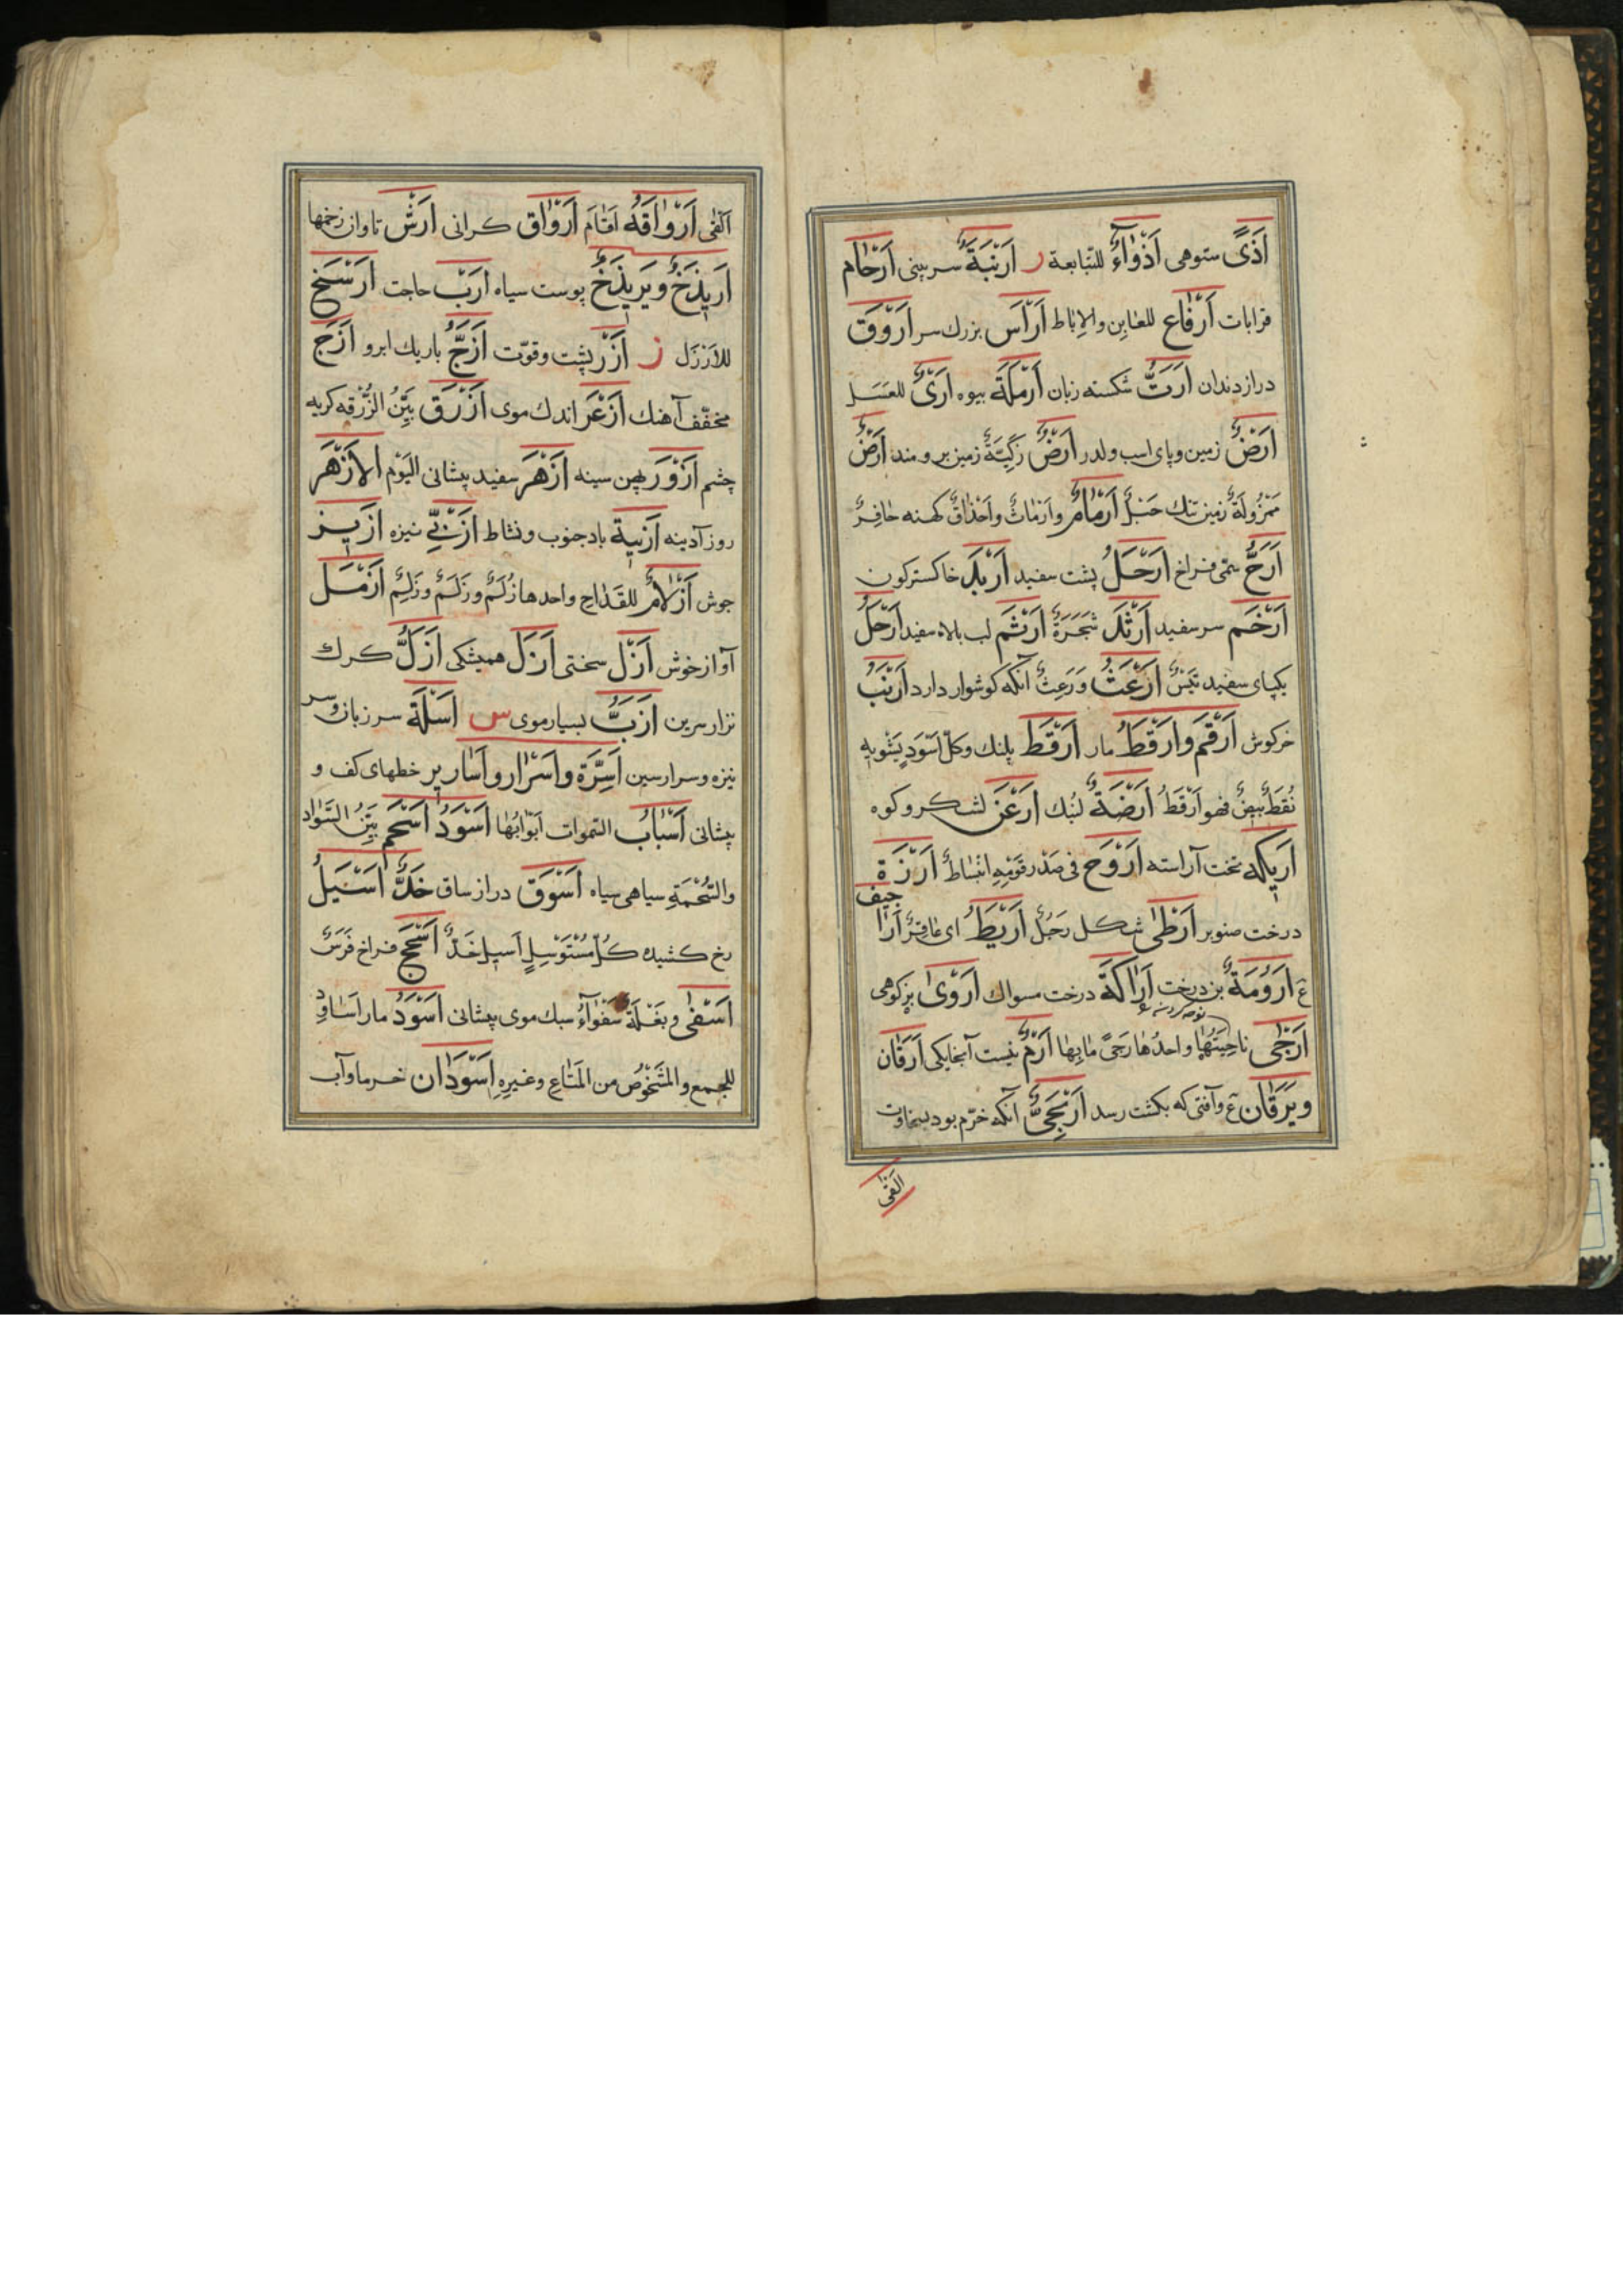 اَذًى ستوهی اَذْوَاءٌ للتبابعة ر اَرْنَبَةٌ سر بینی اَرْحَام
قرابات اَرْفَاغ للمغابن والاباط اَرْأَس بزرك سر اَرْوَق
دراز دندان اَرَتُّ شكسته زبان اَرْمَلَة بیوه اَرْىٌ للعَسَل
اَرْضٌ زمین وپای اسب ولدر اَرْضٌ زَكِيَّةٌ زمین برومند اَرْضٌ
زمین تنك حَبْلٌ اَرْمَامٌ واَرْمَاثٌ واَحْذَاقٌ كهنه حَافِرٌ
اَرَحُّ سمی فراخ اَرْحَلُ پشت سفید اَرْبَد خاكسترگون
اَرْخَم سر سفید اَرْثَد شَجَرَةٌ اَرْثَم لب بالا سفید اَرْجَلُ
یكپای سفید تَيْسٌ اَرْعَثُ وَرَعِثٌ آنكه كوشوار دارد اَرْنَبُ
خركوش اَرْقَم واَرْقَطُ مار اَرْقَط پلنك وكلّ اَسْوَدٍ يَشُوبُه
نُقَطٌ بِيضٌ فهو اَرْقَطُ اَرَضَةٌ لنبك اَرْعَن لشكر و كوه
اَرِيكه تخت آراسته اَرْوَح فی صَدْرِ قَوْمِهِ انْبِسَاطٌ اَرْزَة
درخت صنوبر اَرْطَى شكل رَجُلٌ اَرِيطٌ ای عَاقِرٌ اَرَا جیف
ع اَرُومَةٌ بن درخت اَرَاكَةٌ درخت مسواك اَرْوَى بز كوهی
اَرْجَى نَاحِيَتُهَا واحدُهَا رَجًى مَا بِهَا اَرِمٌ نیست آنجا یكی اَرَقَان
ويَرَقَان ع وآفتی كه بكشت رسد اَرْيَحِيٌّ آنكه خرّم بود بسخاوت
اَلْقَى
اَلْقَى اَرْوَاقَهُ اَقَامَ اَرْوَاق كرانی اَرْش تاوان زخمها
اَرَنْدَجٌ ويَرَنْدَجٌ پوست سیاه اَرَبْ حاجت اَرْسَح
للاَزَلّ ز اَزْر پشت وقوّت اَزَجُّ باریك ابرو اَزَج
مخفّف آهنك اَزْعَر اندك موی اَزْرَق بَيِّنُ الزُّرْقه كربه
چشم اَزْوَر پهن سینه اَزْهَر سفید پیشانی الیَوْم الاَزْهَر
روز آدینه اَزْيَبة باد جنوب ونشاط اَزَنِيّ نیزه اَزِيز
جوش اَزْلَامٌ للقداح واحدها زُلَمٌ وزَلَمٌ وزَلِمٌ اَزْمَل
آواز خوش اَزْل سختی اَزَل همیشكی اَزَلُّ كرك
نزار سرین اَزَبُّ بسیار موی س اَسَلَة سر زبان وسر
نیزه وسرارسین اَسِرَّة واَسْرَار واَسَارِیر خطهای كف و
پیشانی اَسْبَابُ السموات اَبْوَابُهَا اَسْوَدُ اَسْحَم بَيِّنُ السَّوَاد
والسُّحْمَةِ سیاهی سیاه اَسْوَق دراز ساق خَدٌّ اَسِيل
رخ كشیده كُلّ مُسْتَرْسِلٍ اَسِيل خَدٌّ اَسْجَح فراخ فَرَسٌ
اَسْفَى وبَغْلَةٌ سَفْوَاءُ سبك موی پیشانی اَسْوَدُ مار اَسَاوِد
للجمع والشُّخُوصُ من المَتَاعِ وغيرِهِ اَسْوَدَان خرما وآب